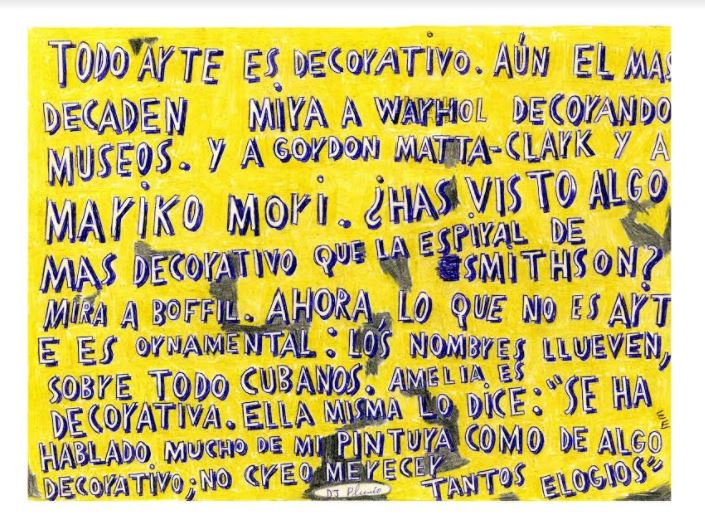 TODO ARTE ES DECORATIVO. AÚN EL MAS
DECADEN MIRA A WARHOL DECORANDO
MUSEOS. Y A GORDON MATTA-CLARK Y A
MARIKO MORI. ¿HAS VISTO ALGO
MAS DECORATIVO QUE LA ESPIRAL DE
SMITHSON?
MIRA A BOFFIL. AHORA, LO QUE NO ES ART
E ES ORNAMENTAL: LOS NOMBRES LLUEVEN,
SOBRE TODO CUBANOS. AMELIA ES
DECORATIVA. ELLA MISMA LO DICE: "SE HA
HABLADO MUCHO DE MI PINTURA COMO DE ALGO
DECORATIVO; NO CREO MERECER
TANTOS ELOGIOS"
DJ